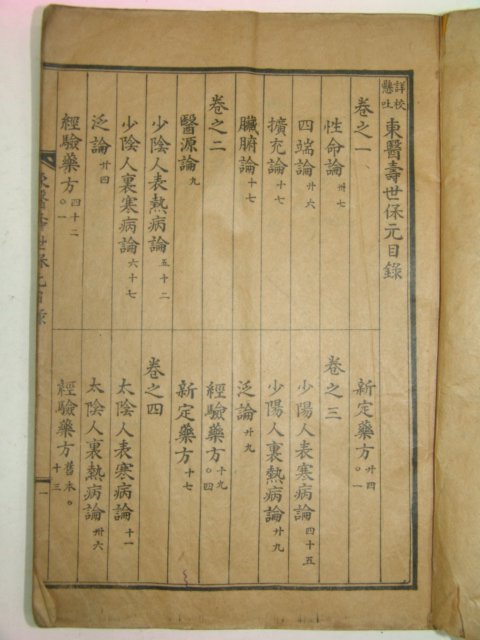 詳校懸吐 東醫壽世保元目錄
卷之一
性命論 卅七
四端論 卅六
擴充論 十七
臟腑論 十七
卷之二
醫源論 九
少陰人表熱病論 五十二
少陰人裏寒病論 六十七
泛論 廿四
經驗藥方 四十二○一
新定藥方 廿四○一
卷之三
少陽人表寒病論 四十五
少陽人裏熱病論 廿九
泛論 廿九
經驗藥方 十九○四
新定藥方 十七
卷之四
太陰人表寒病論 十一
太陰人裏熱病論 卅六
經驗藥方 舊本○十三
東醫壽世保元目錄
一